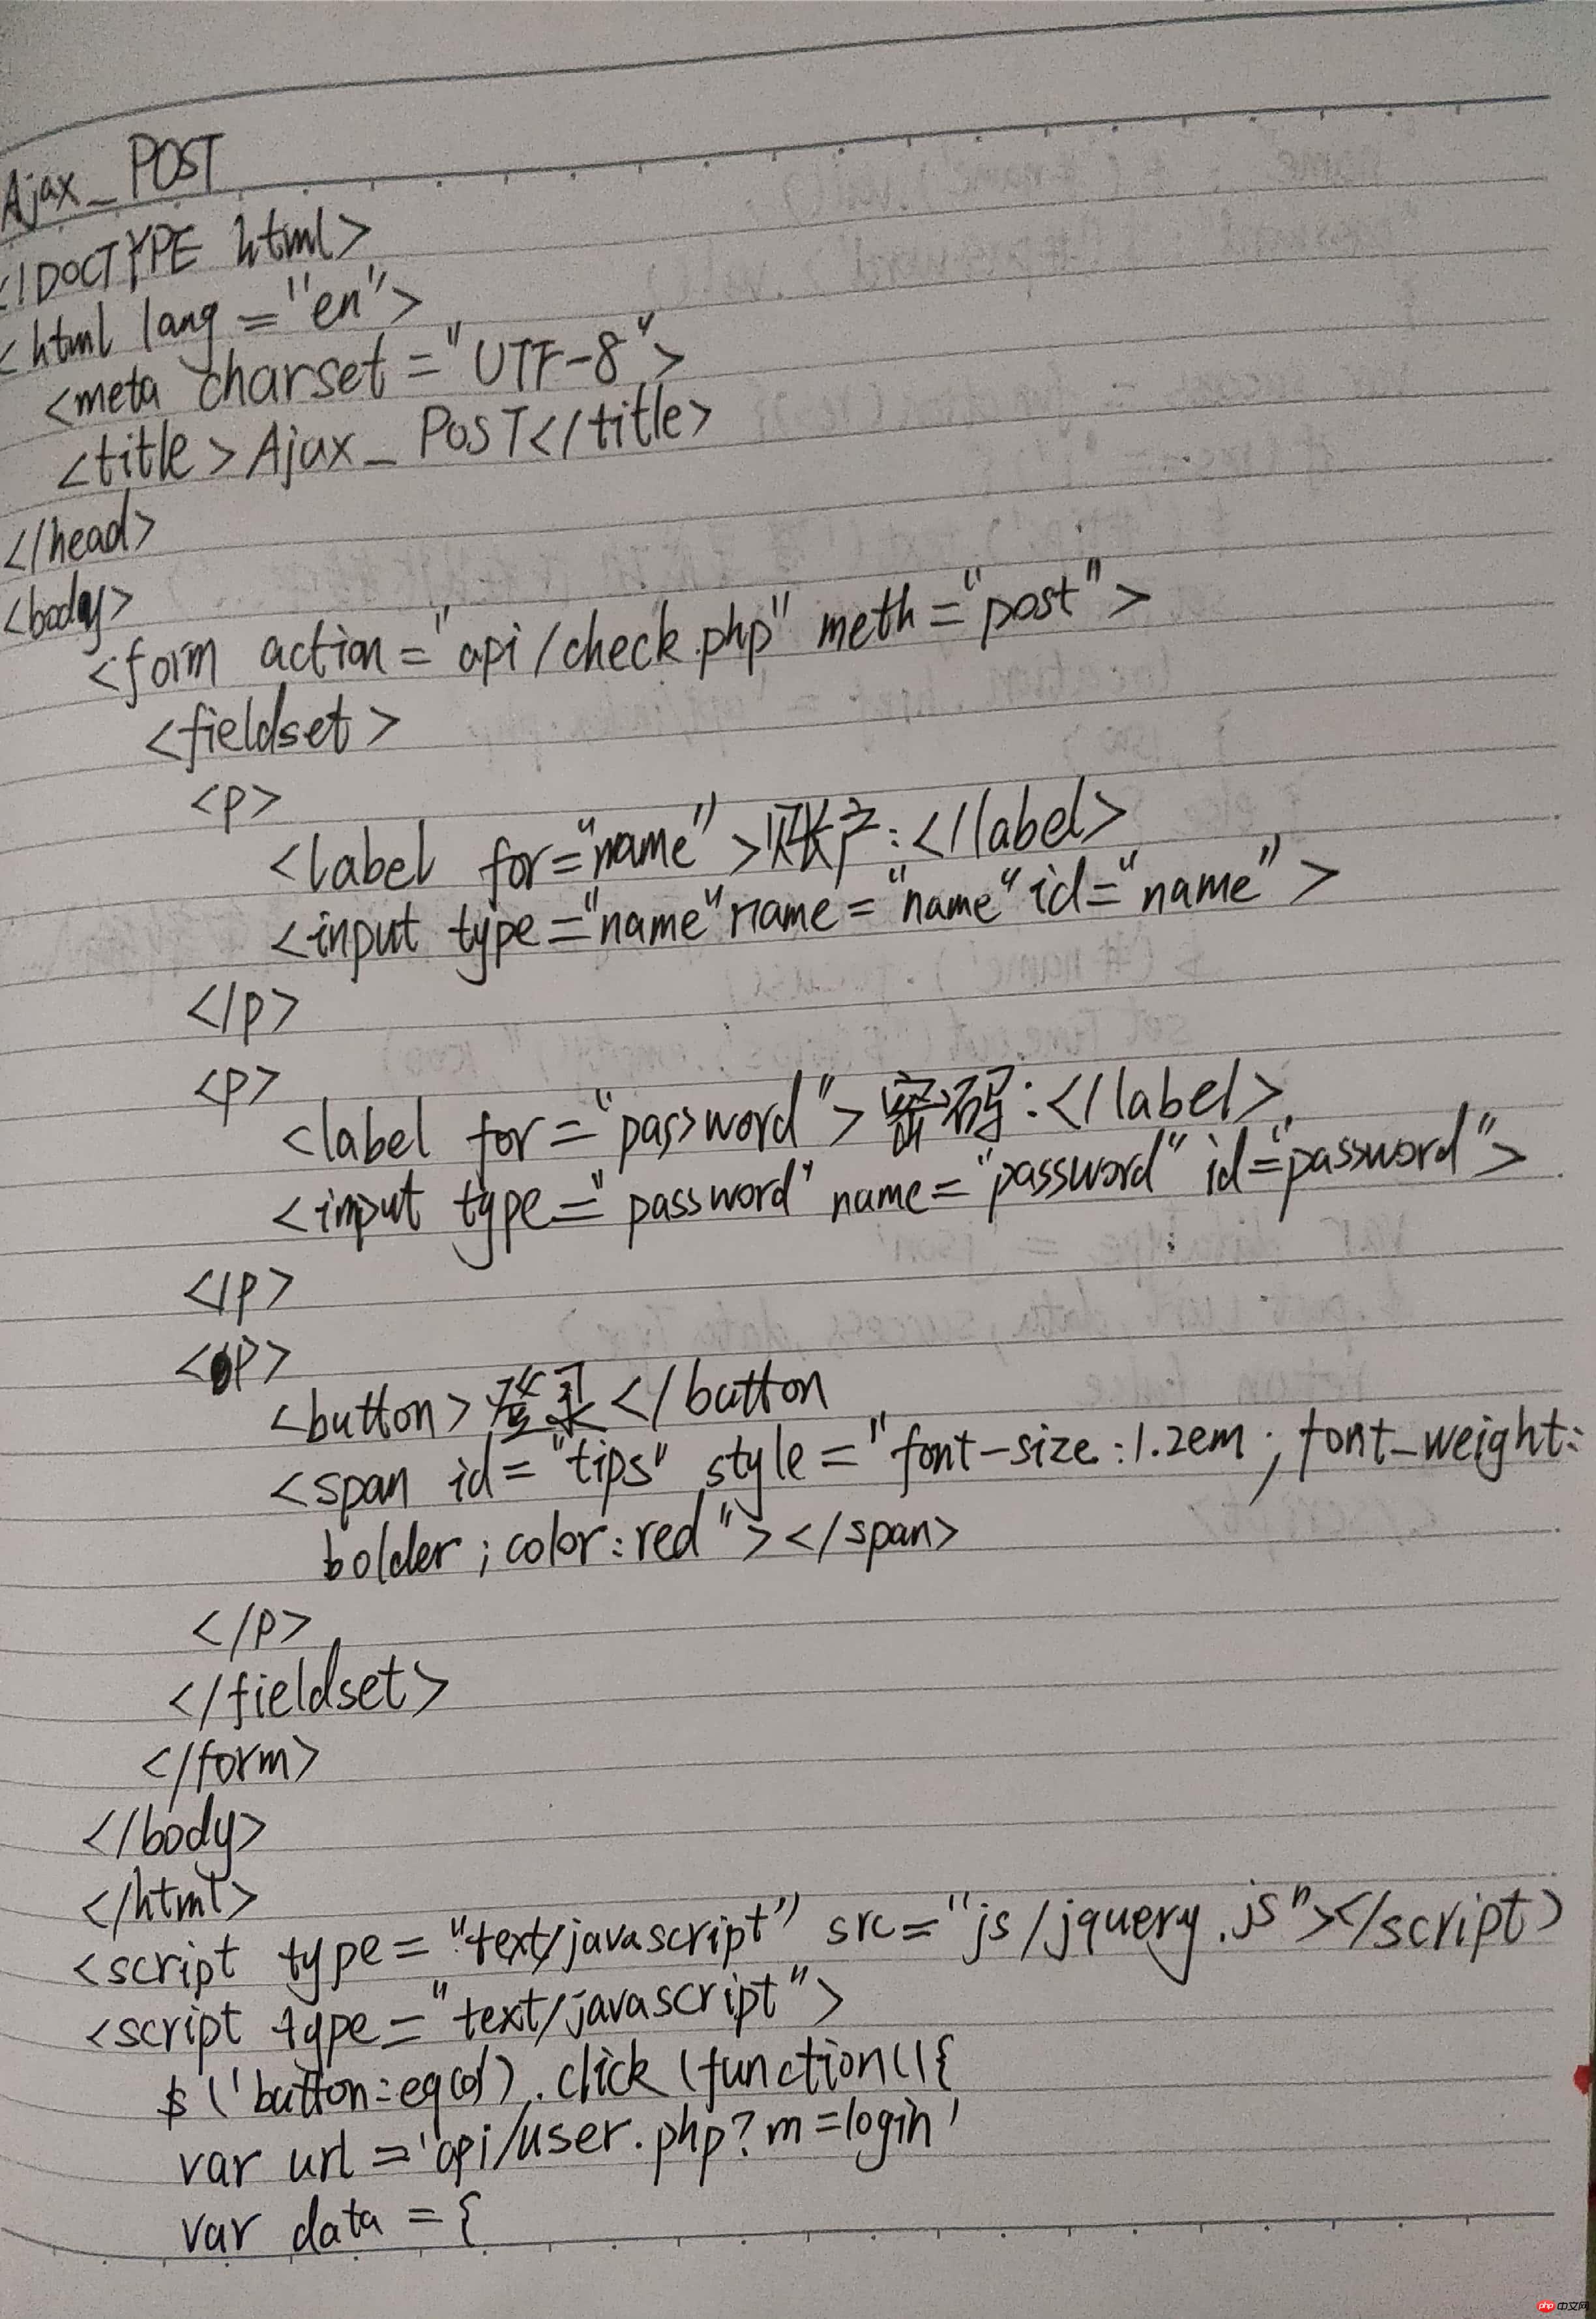 Ajax_POST
<!DOCTYPE html>
<html lang="en">
<meta charset="UTF-8">
<title>Ajax_POST</title>
</head>
<body>
<form action="api/check.php" meth="post">
<fieldset>
<p>
<label for="name">账户:</label>
<input type="name" name="name" id="name">
</p>
<p>
<label for="password">密码:</label>
<input type="password" name="password" id="password">
</p>
<p>
<button>登录</button
<span id="tips" style="font-size:1.2em; font-weight:
bolder;color:red"></span>
</p>
</fieldset>
</form>
</body>
</html>
<script type="text/javascript" src="js/jquery.js"></script>
<script type="text/javascript">
$('button:eq(0)').click(function(){
var url='api/user.php?m=login'
var data={
php中文网